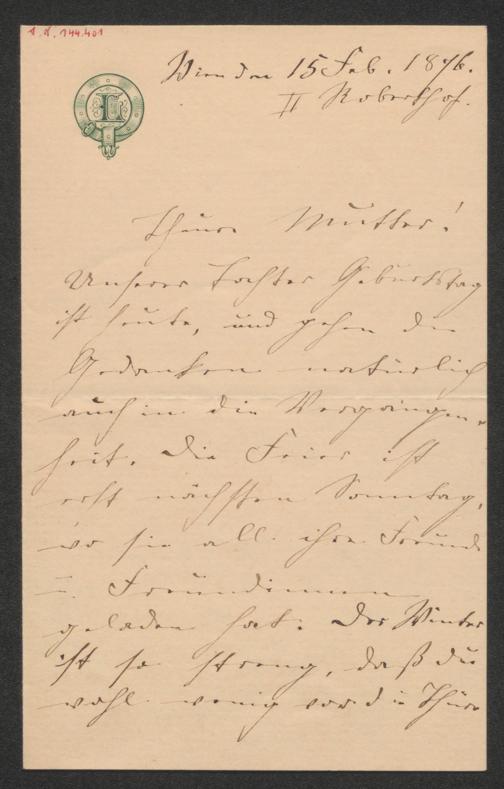 I.N. 144.401
L
Wien den 15 Feb. 1876.
II Roberthof.
Theure Mutter!
Unserer Tochter Geburtstag
ist heute, und gehen die
Gedanken natürlich
auch in die Vergangen-
heit. Die Feier ist
erst nächsten Sonntag,
wo sie all ihre Freunde
u. Freundinnen
geladen hat. Der Winter
ist so streng, daß du
wohl wenig vor die Thüre